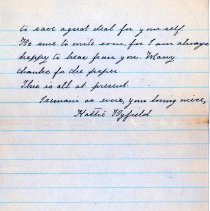 to save a great deal for your self
Be sure to write soon, for I am always
happy to hear from you. Many
thanks for the paper
This is all at present
Remains as ever, your loving niece,
Hattie Byfield